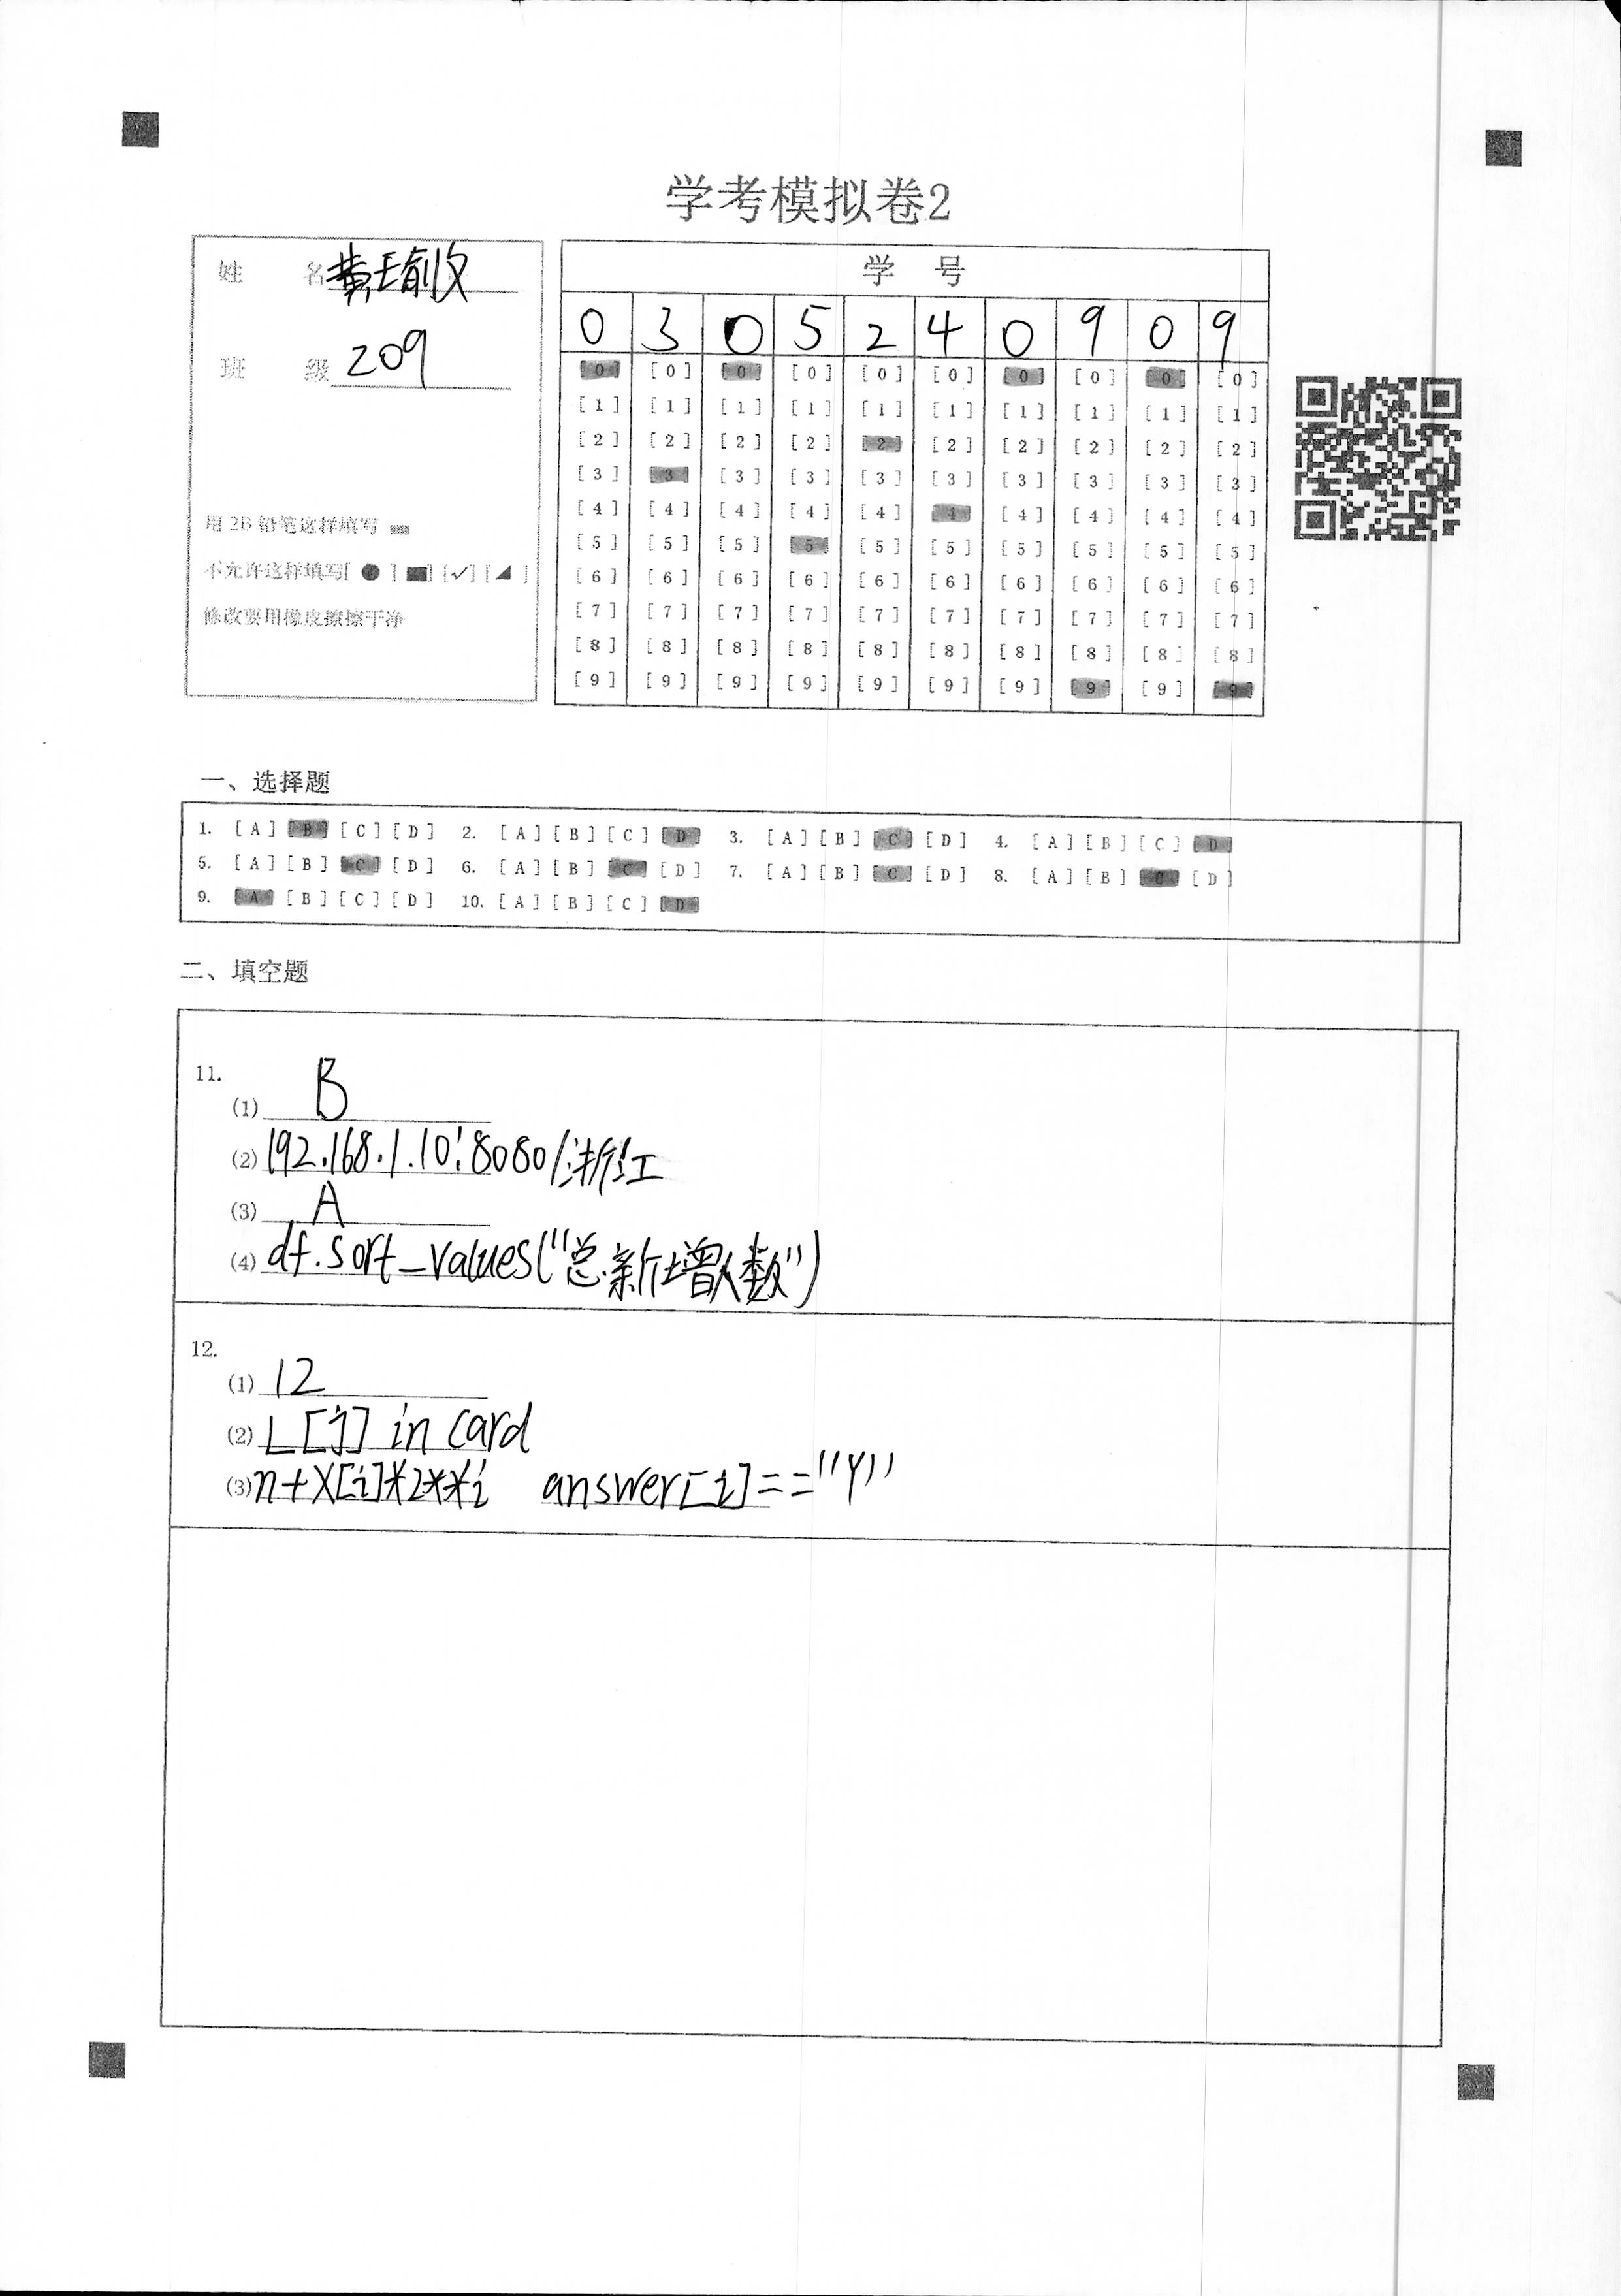 学考模拟卷2
姓 名 黄瑜
班 级 209
用 2B 铅笔这样填写
不允许这样填写[ ● ] [■] [✓] [◢ ]
修改要用橡皮擦擦干净
学 号
0 3 0 5 2 4 0 9 0 9
[0] [0] [0] [0] [0] [0] [0] [0] [0] [0]
[1] [1] [1] [1] [1] [1] [1] [1] [1] [1]
[2] [2] [2] [2] [2] [2] [2] [2] [2] [2]
[3] [3] [3] [3] [3] [3] [3] [3] [3] [3]
[4] [4] [4] [4] [4] [4] [4] [4] [4] [4]
[5] [5] [5] [5] [5] [5] [5] [5] [5] [5]
[6] [6] [6] [6] [6] [6] [6] [6] [6] [6]
[7] [7] [7] [7] [7] [7] [7] [7] [7] [7]
[8] [8] [8] [8] [8] [8] [8] [8] [8] [8]
[9] [9] [9] [9] [9] [9] [9] [9] [9] [9]
一、选择题
1. [A] [B] [C] [D] 2. [A] [B] [C] [D] 3. [A] [B] [C] [D] 4. [A] [B] [C] [D]
5. [A] [B] [C] [D] 6. [A] [B] [C] [D] 7. [A] [B] [C] [D] 8. [A] [B] [C] [D]
9. [A] [B] [C] [D] 10. [A] [B] [C] [D]
二、填空题
11.
(1) B
(2) 192.168.1.10:8080/浙江
(3) A
(4) df.sort_values("总新增人数")
12.
(1) 12
(2) L[j] in card
(3) n+X[i]*2**i answer[i]=="Y"